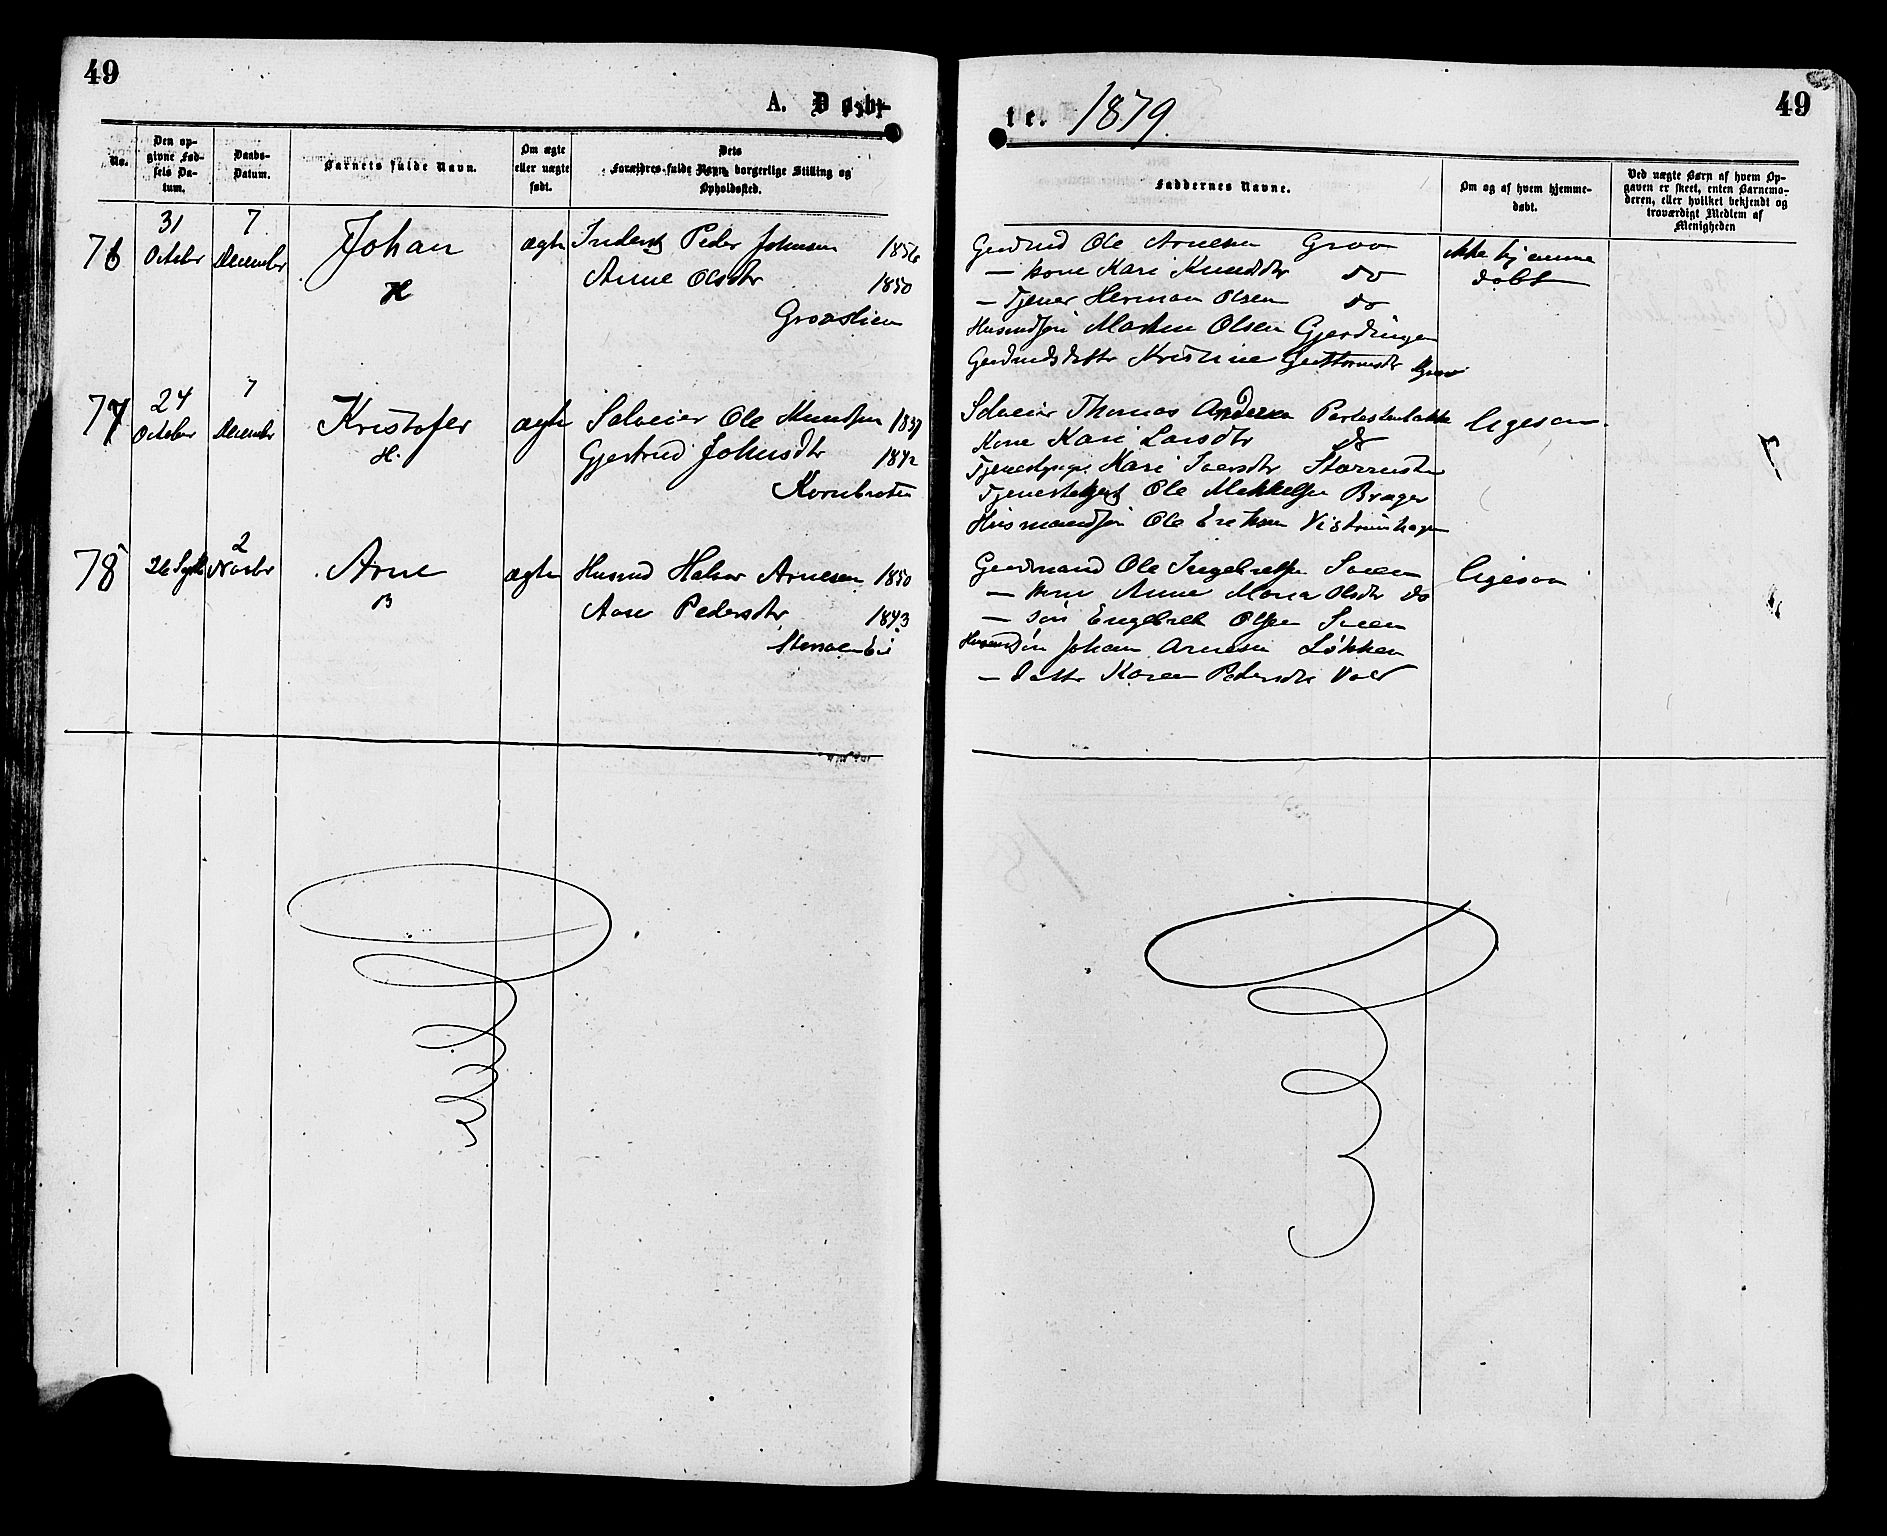 49
A. Døbte. 1879.
49
No.
Den opgivne Fødsels Datum.
Daabs-Datum.
Barnets fulde Navn.
Om ægte eller uægte født.
Dets Forældres fulde Navn, borgerlige Stilling og Opholdssted.
Faddernes Navne.
Om og af hvem hjemmedøbt.
Ved uægte Børn af hvem Opgaven er skeet, enten Barnemoderen, eller hvilket bekjendt og troværdigt Medlem af Menigheden
76
31 October
7 December
Johan
H
ægte
Inderst Peder Johnsen 1856
Anne Olsdtr 1850
Graaslien
Gaardmd Ole Arnesen Graa
— kone Kari Knudsdtr do
— Tjener Herman Olsen do
Husmdsøn Olsen Gjerdingen
Gaardmdsdatter Kristine Guttormsdtr
ikke hjemme
døbt
77
24 October
7 December
Kristofer
H.
ægte
Selveier Ole Knudsen 1837
Gjertrud Johnsdtr 1842
Kornbraten
Selveier Thomas Andersen
Kone Kari Larsdtr do
Tjenestepige Kari Iversdtr
Tjenestekarl Ole Mikkelsen Brager
Husmandsøn Ole Eriksen
ligesaa
78
26 Septb
2 Novbr
Arne
B
ægte
Husmd Halvor Arnesen 1850
Aase Pedersdtr 1843
Gaardmand Ole Ingebretsen Sveen
— kone Anne Maria Olsdtr do
— søn Engebret Olsen Sveen
Husmdsøn Johan Arnesen Løkken
— datter Karen Pedersdtr
ligesaa